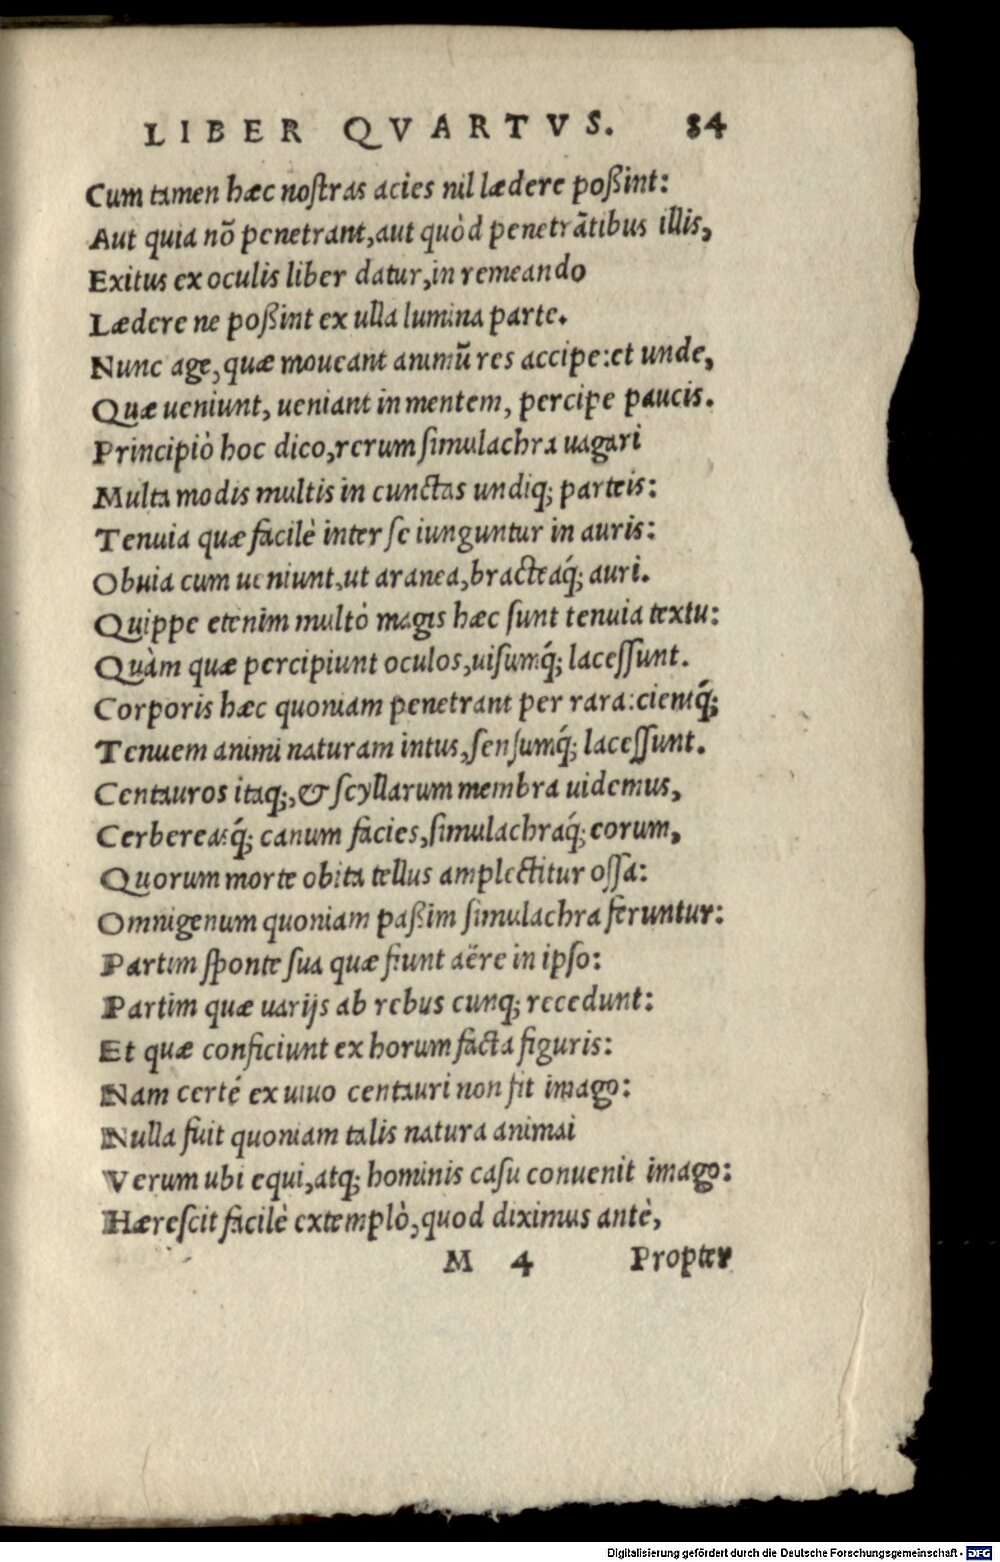 LIBER QVARTVS. 84
Cum tamen hæc nostras acies nil lædere poßint:
Aut quia nõ penetrant, aut quòd penetrãtibus illis,
Exitus ex oculis liber datur, in remeando
Lædere ne poßint ex ulla lumina parte.
Nunc age, quæ moueant animũ res accipe: et unde,
Quæ ueniunt, ueniant in mentem, percipe paucis.
Principiò hoc dico, rerum simulachra uagari
Multa modis multis in cunctas undiq; parteis:
Tenuia quæ facilè inter se iunguntur in auris:
Obuia cum ueniunt, ut aranea, bracteaq́; auri.
Quippe etenim multò magis hæc sunt tenuia textu:
Quàm quæ percipiunt oculos, uisumq́; lacessunt.
Corporis hæc quoniam penetrant per rara: cientq́;
Tenuem animi naturam intus, sensumq́; lacessunt.
Centauros itaq;, & scyllarum membra uidemus,
Cerbereasq́; canum facies, simulachraq́; eorum,
Quorum morte obita tellus amplectitur ossa:
Omnigenum quoniam paßim simulachra feruntur:
Partim sponte sua quæ fiunt aëre in ipso:
Partim quæ uarijs ab rebus cunq; recedunt:
Et quæ conficiunt ex horum facta figuris:
Nam certé ex uiuo centauri non fit imago:
Nulla fuit quoniam talis natura animai
Verum ubi equi, atq; hominis casu conuenit imago:
Hærescit facilè extemplò, quod diximus antè,
M 4 Propter
Digitalisierung gefördert durch die Deutsche Forschungsgemeinschaft - DFG